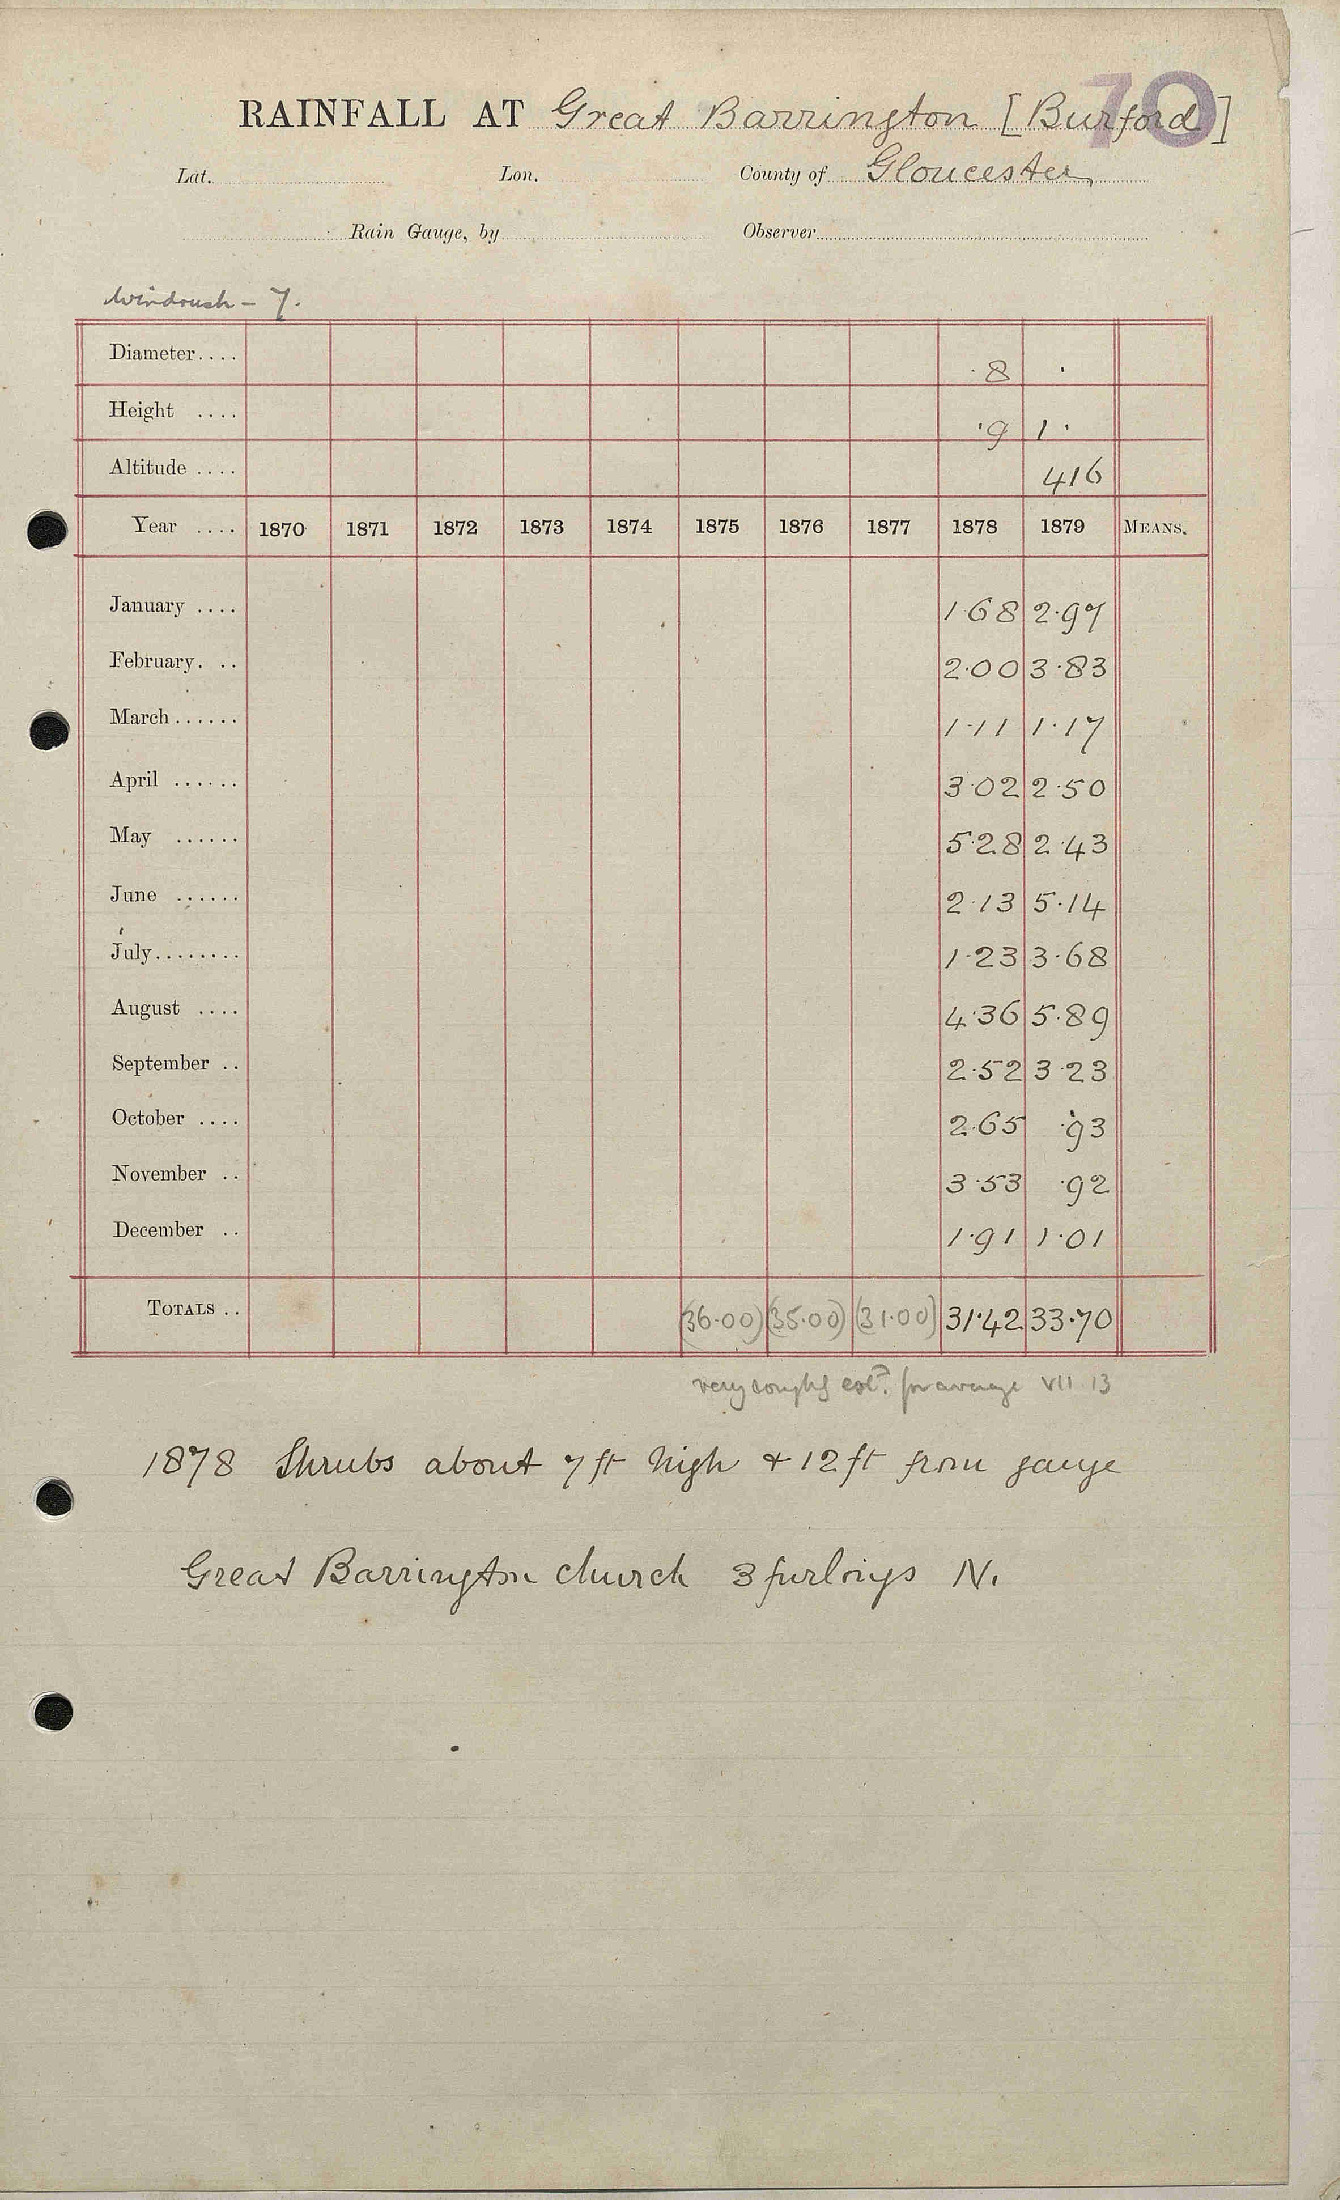 70
RAINFALL AT Great Barrington [Burford]
Lat. Lon. County of Gloucester
Rain Gauge, by Observer
Windrush - 7.
Diameter.... 8
Height .... 9 1
Altitude .... 416
Year .... 1870 1871 1872 1873 1874 1875 1876 1877 1878 1879 MEANS.
January .... 1.68 2.97
February. .. 2.00 3.83
March...... 1.11 1.17
April ...... 3.02 2.50
May ...... 5.28 2.43
June ...... 2.13 5.14
July........ 1.23 3.68
August .... 4.36 5.89
September .. 2.52 3.23
October .... 2.65 .93
November .. 3.53 .92
December .. 1.91 1.01
TOTALS .. (36.00) (35.00) (31.00) 31.42 33.70
very roughly est? for average VII 13
1878 Shrubs about 7 ft high + 12 ft from gauge
Great Barrington church 3 furlongs N.